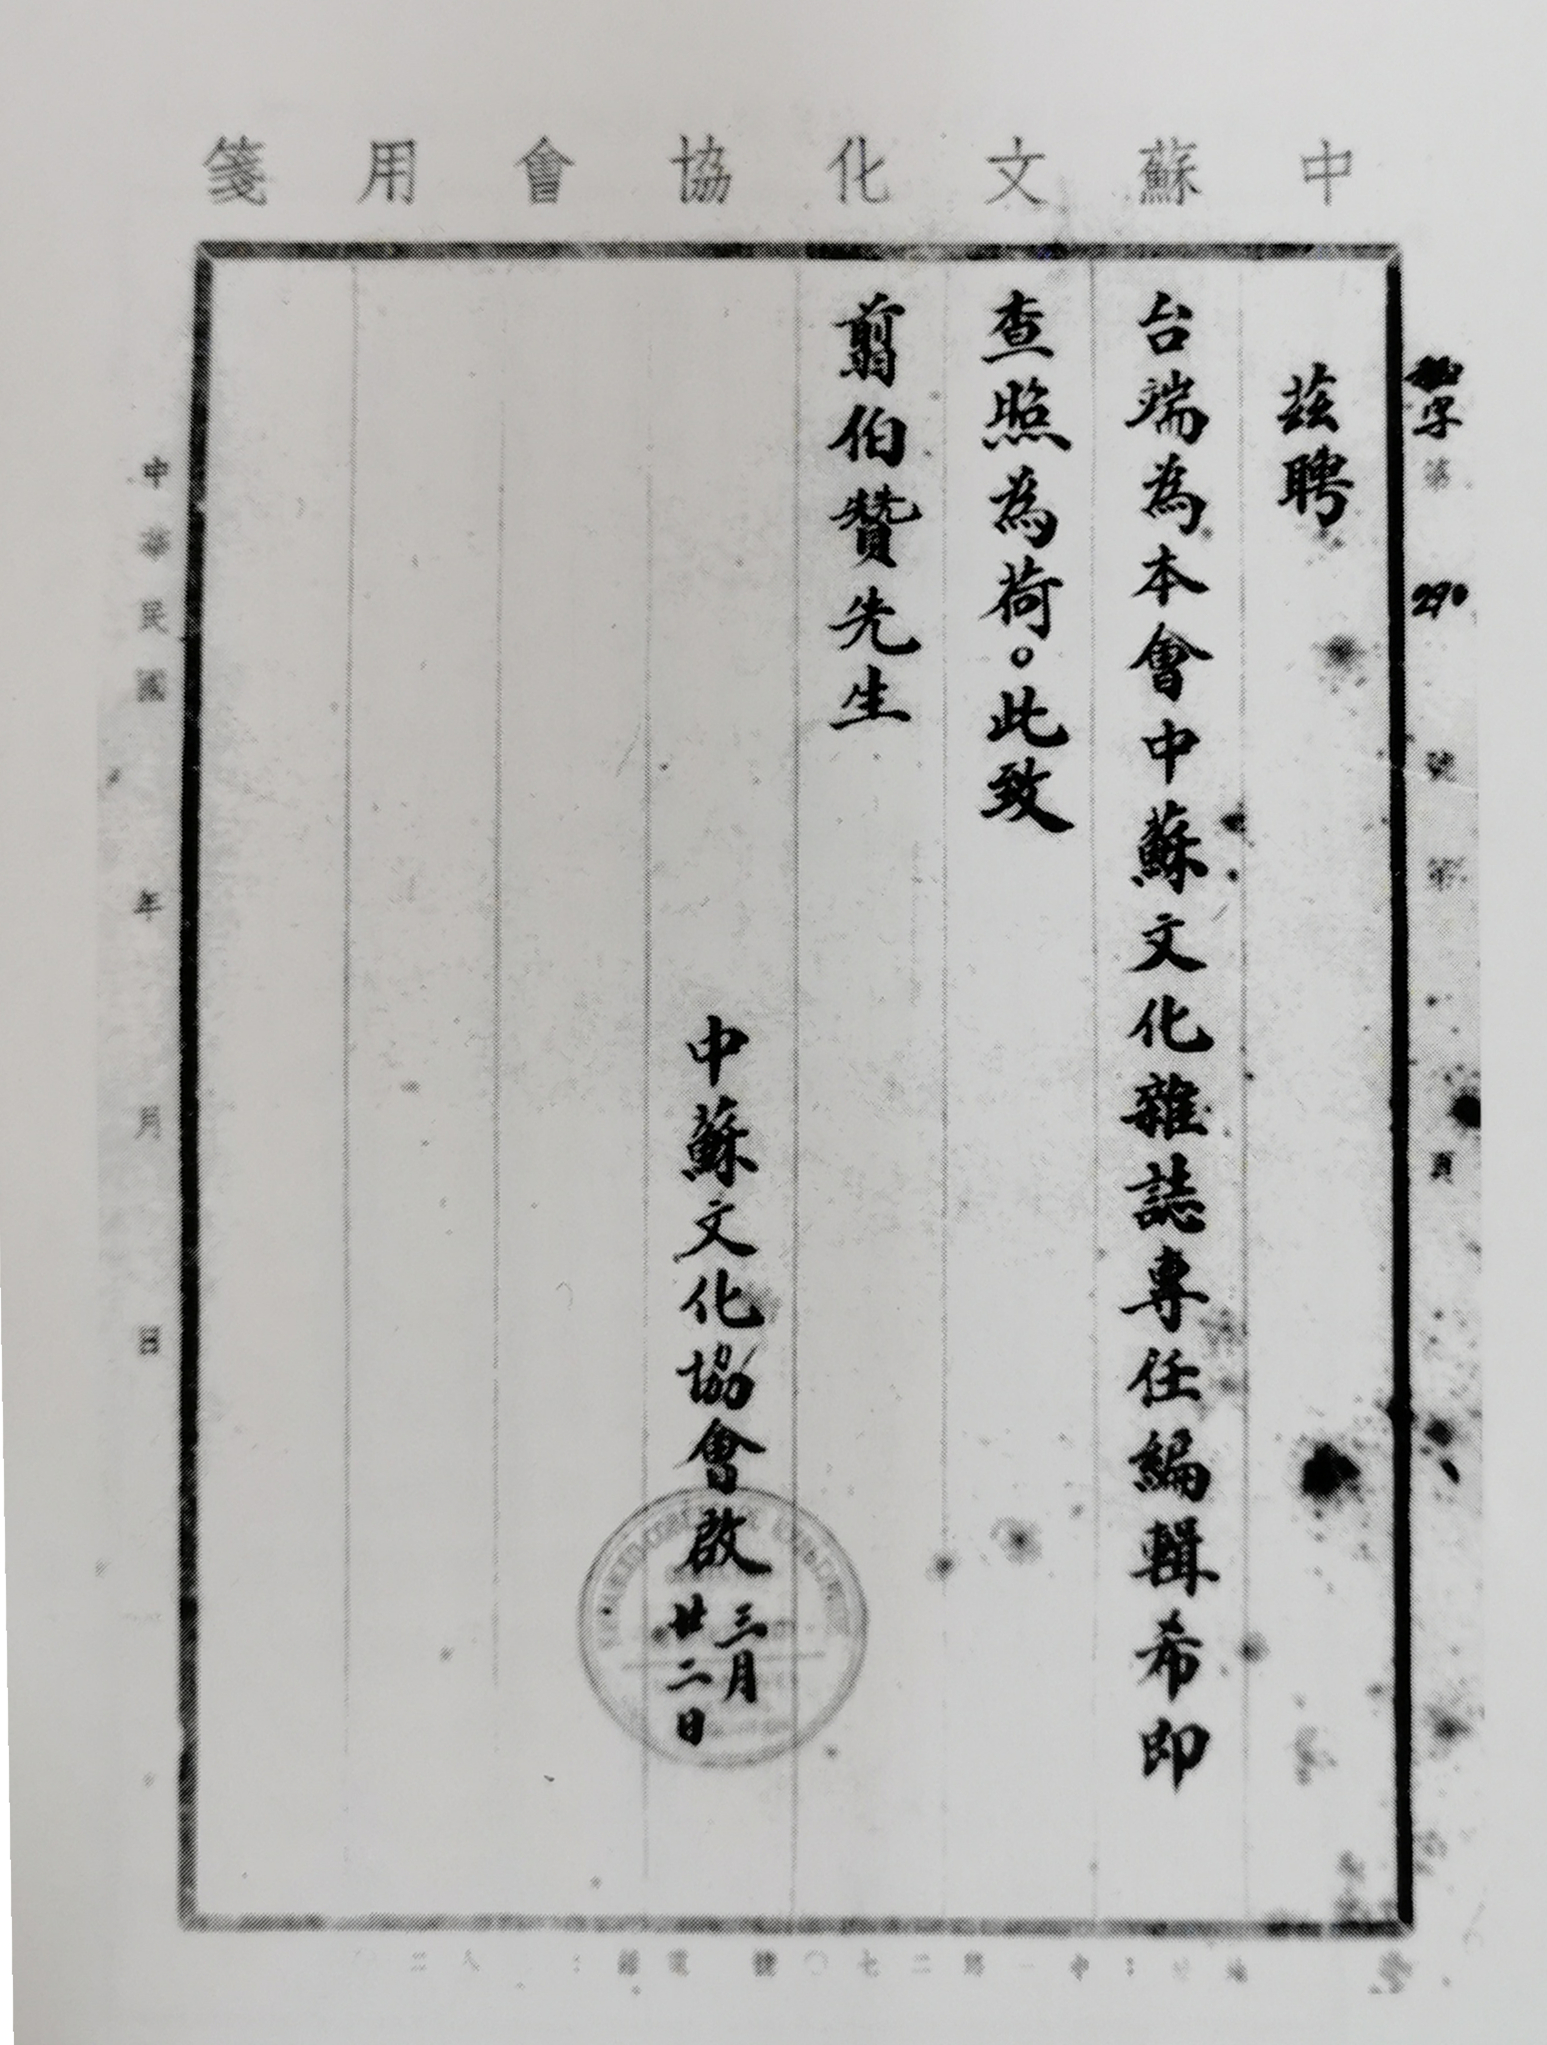 中蘇文化協會用箋
字第290號第 頁
茲聘
台端為本會中蘇文化雜誌專任編輯希即
查照為荷。此致
翦伯贊先生
中蘇文化協會啟
三月
廿二日
中華民國 年 月 日